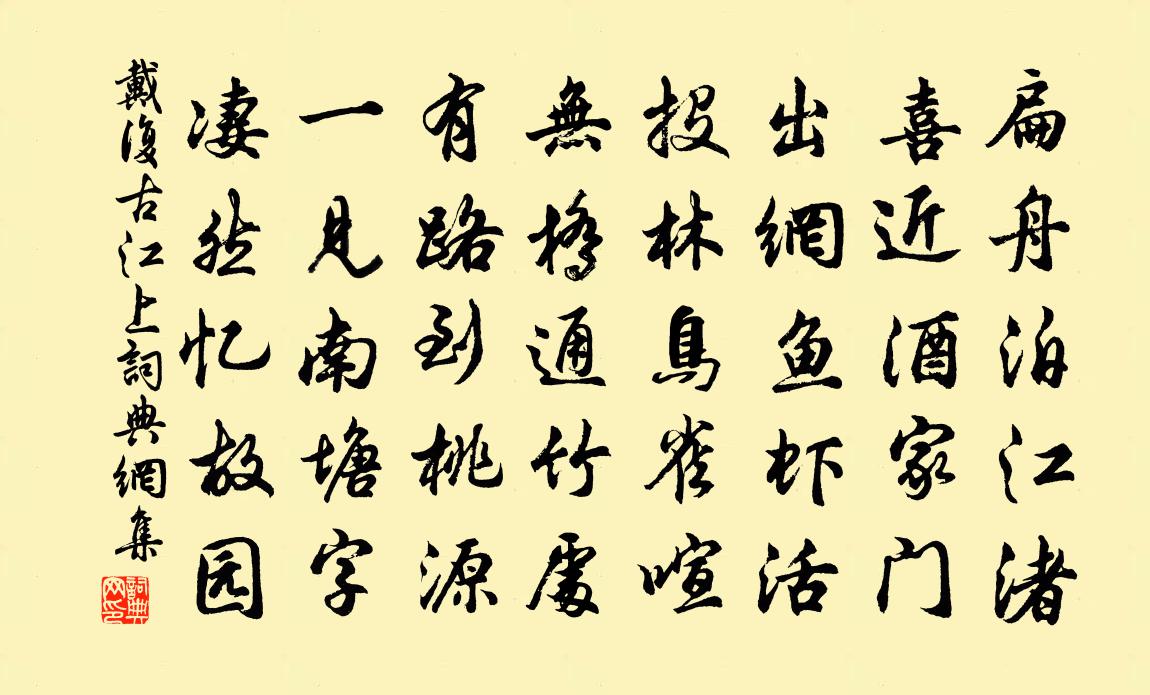 扁舟泊江渚
喜近酒家门
出網鱼虾活
投林鳥雀喧
無橋通竹處
有路到桃源
一見南塘字
凄然忆故园
戴復古江上詞典網集
詞典網印